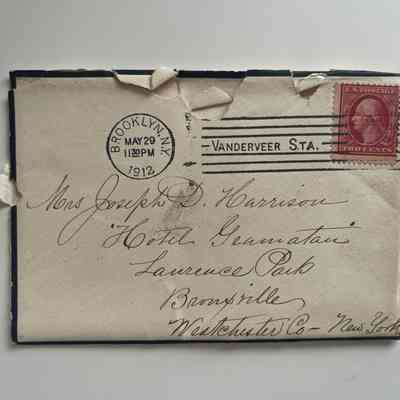 U.S. POSTAGE
TWO CENTS
BROOKLYN, N.Y.
MAY 29
11 30 PM
1912
VANDERVEER STA.
Mrs Joseph D. Harrison
"Hotel Gramatan"
Laurence Park
Bronxville
Westchester Co - New York